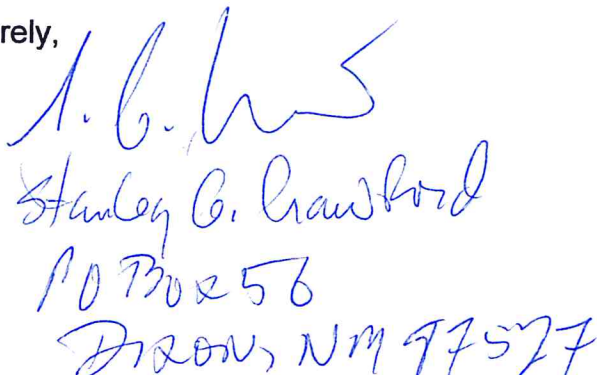 rely,
S. G. Crawford
Stanley G. Crawford
PO Box 56
Dixon, NM 87527